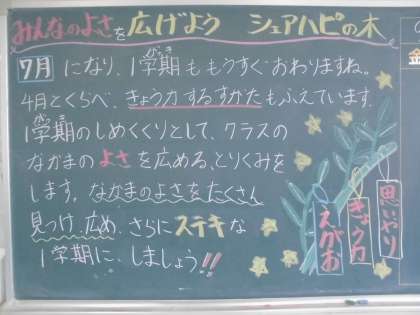 みんなのよさを広げよう シェアハピの木
7月になり、1学期ももうすぐおわりますね。
4月とくらべ、きょう力するすがたもふえています。
1学期のしめくくりとして、クラスの
なかまのよさを広める、とりくみを
します。なかまのよさをたくさん
見つけ、広め、さらにステキな
1学期に、しましょう!!
えがお
きょう力
思いやり